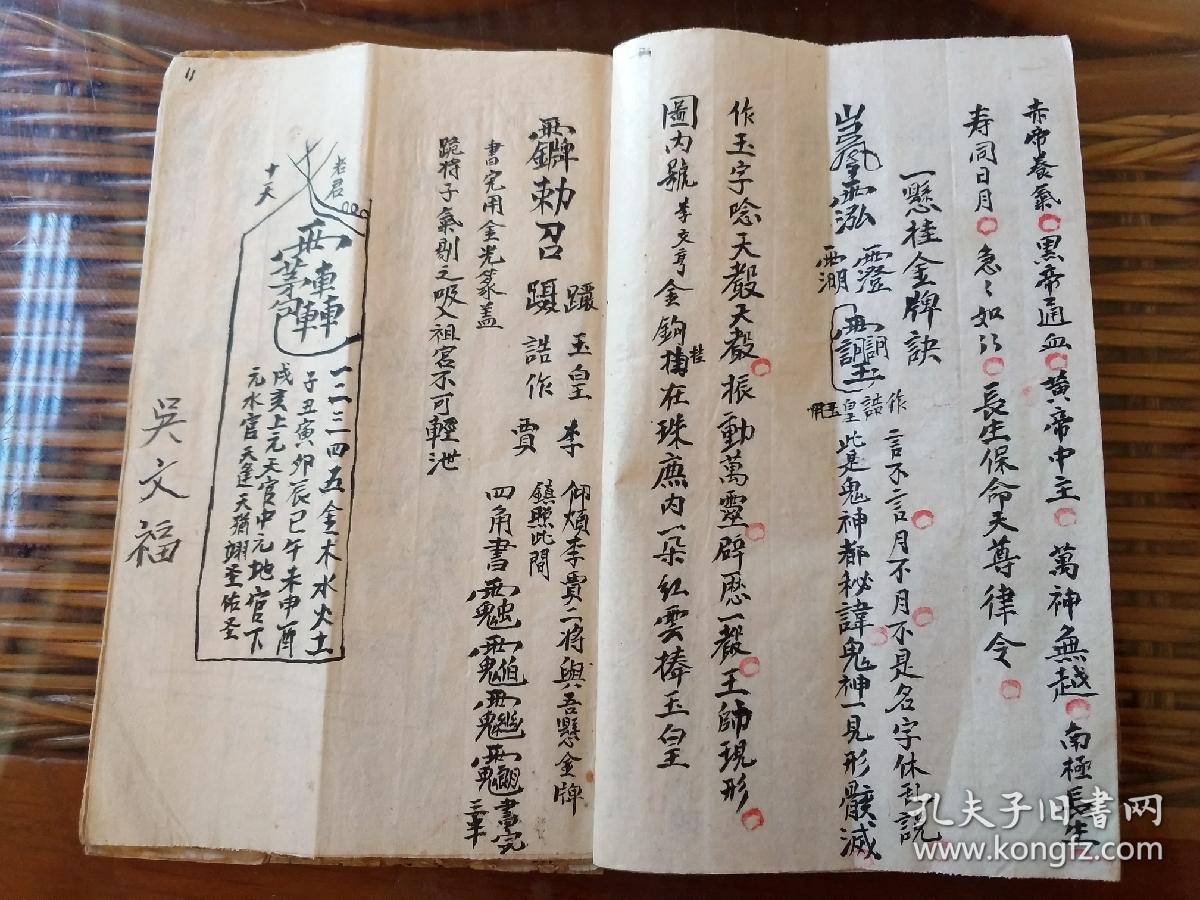 赤帝養氣黑帝通血黃帝中主萬神無越南極長生
寿同日月急々如〻長生保命天尊律令
一懸桂金牌訣
言不言月不月不是名字休乱説
作誥皇玉用
此是鬼神都秘諱鬼神一見形骸滅
作玉字唸天轂天轂振動萬靈辟歷一轂王師現形
圖内號李文亨金鉤掛在珠庶内一朵紅雲捧玉皇
勅召
玉皇
誥作
李
賈
仰煩李賈二将與吾懸金牌
鎮照此間
四角書
書完
書完用金光篆盖
跪将子氣剔之吸入祖宮不可輕泄
老君
十天
一二三四五金木水火土
子丑寅卯辰巳午未申酉
戌亥上元天官中元地官下
元水官天逢天猶翊圣佑圣
吳文福
11
孔夫子旧书网
www.kongfz.com